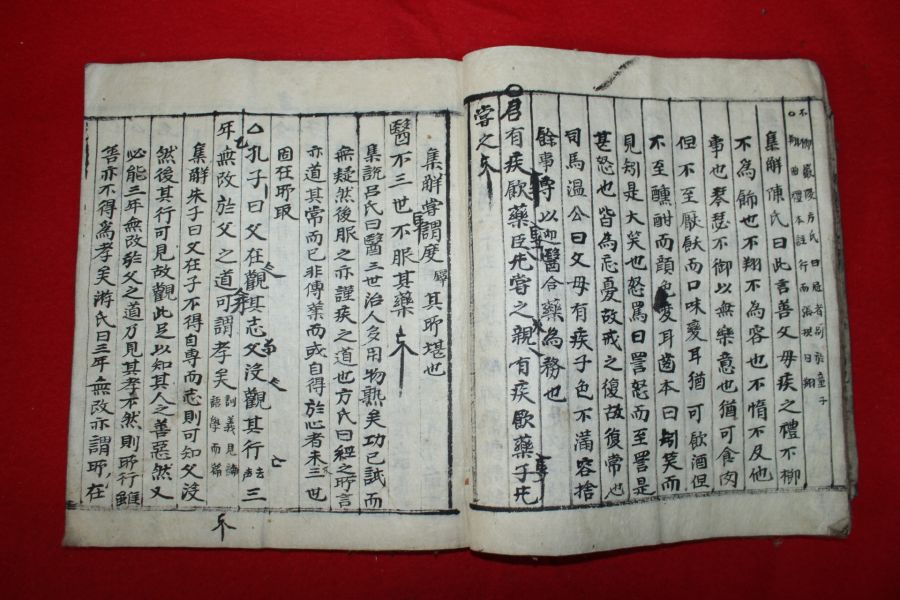 集解陳氏曰此言養父母疾之禮不櫛
不為飾也不翔不為容也不惰不及他
事也琴瑟不御以無樂意也猶可食肉
但不至厭飫而口味變耳猶可飲酒但
不至醺酣而顔色變耳齒本曰矧笑而
見矧是大笑也怒罵曰詈怒而至詈是
甚怒也皆為忘憂故戒之復故復常也
司馬温公曰父母有疾子色不滿容捨
餘事專以迎醫合藥為務也
君有疾飮藥臣先嘗之親有疾飮藥子先
嘗之
集解嘗謂度其所堪也
醫不三世不服其藥
集說呂氏曰醫三世治人多用物熟矣功已試而
無疑然後服之亦謹疾之道也方氏曰經之所言
亦道其常而已非傳業而或自得於心者未三世
固在所取
孔子曰父在觀其志父没觀其行去声三
年無改於父之道可謂孝矣
集解朱子曰父在子不得自專而志則可知父沒
然後其行可見故觀此足以知其人之善惡然又
必能三年無改於父之道乃見其孝不然則所行雖
善亦不得為孝矣游氏曰三年無改亦謂所在